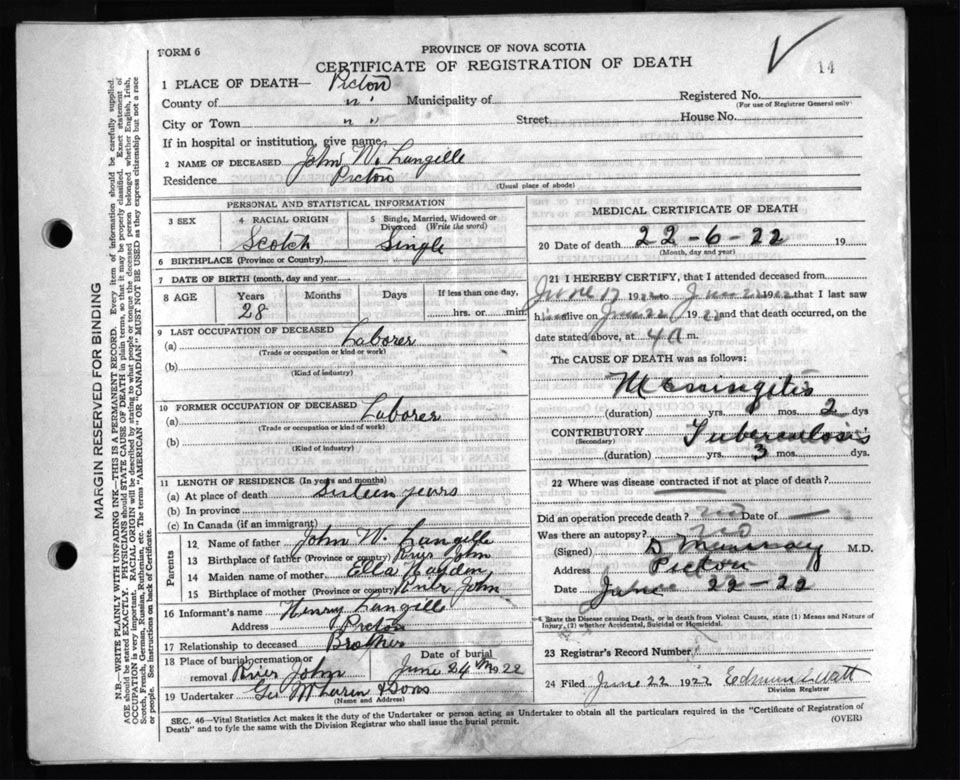 FORM 6
PROVINCE OF NOVA SCOTIA
CERTIFICATE OF REGISTRATION OF DEATH
14
1 PLACE OF DEATH— Pictou
County of " Municipality of
Registered No.
(For use of Registrar General only)
City or Town " " Street House No.
If in hospital or institution, give name
2 NAME OF DECEASED John W. Langille
Residence Pictou
(Usual place of abode)
PERSONAL AND STATISTICAL INFORMATION
3 SEX
4 RACIAL ORIGIN Scotch
5 Single, Married, Widowed or Divorced (Write the word) Single
6 BIRTHPLACE (Province or Country)
7 DATE OF BIRTH (month, day and year)
8 AGE Years 28 Months Days If less than one day, hrs. or min
9 LAST OCCUPATION OF DECEASED
(a) Laborer
(Trade or occupation or kind or work)
(b)
(Kind of industry)
10 FORMER OCCUPATION OF DECEASED
(a) Laborer
(Trade or occupation or kind or work)
(b)
(Kind of industry)
11 LENGTH OF RESIDENCE (In years and months)
(a) At place of death Sixteen years
(b) In province
(c) In Canada (if an immigrant)
Parents
12 Name of father John W. Langille
13 Birthplace of father (Province or country) River John
14 Maiden name of mother Ella Hayden
15 Birthplace of mother (Province or country) River John
16 Informant's name Henry Langille
Address Pictou
17 Relationship to deceased Brother
18 Place of burial, cremation or removal River John
Date of burial June 24th 1922
19 Undertaker Geo McLaren & Sons
(Name and Address)
MEDICAL CERTIFICATE OF DEATH
20 Date of death 22-6-22 19
(Month, day and year)
21 I HEREBY CERTIFY, that I attended deceased from
June 17 1922 to June 192 that I last saw
h alive on June 1922 and that death occurred, on the
date stated above, at 4 A m.
The CAUSE OF DEATH was as follows:
Meningitis
(duration) yrs. mos. 2 dys
CONTRIBUTORY Tuberculosis
(Secondary)
(duration) yrs. 3 mos. dys.
22 Where was disease contracted if not at place of death?
Did an operation precede death? no Date of —
Was there an autopsy? no
(Signed) D. Murray M.D.
Address Pictou
Date June 22-22
* State the Disease causing Death, or in death from Violent Causes, state (1) Means and Nature of
Injury, (2) whether Accidental, Suicidal or Homicidal.
23 Registrar's Record Number
24 Filed June 22 1922
Division Registrar
SEC. 46—Vital Statistics Act makes it the duty of the Undertaker or person acting as Undertaker to obtain all the particulars required in the "Certificate of Registration of
Death" and to fyle the same with the Division Registrar who shall issue the burial permit.
(OVER)
MARGIN RESERVED FOR BINDING
N.B.—WRITE PLAINLY WITH UNFADING INK—THIS IS A PERMANENT RECORD. Every item of information should be carefully supplied.
AGE should be stated EXACTLY. PHYSICIANS should STATE CAUSE OF DEATH in plain terms, so that it may be properly classified. Exact statement of
OCCUPATION is very important. RACIAL ORIGIN will be described by stating to what people or tongue the deceased person belonged whether English, Irish,
Scotch, French, German, Russian, Ruthenian, etc. The terms "AMERICAN" OR "CANADIAN" MUST NOT BE USED as they express citizenship but not a race
or people. See instructions on back of Certificate.